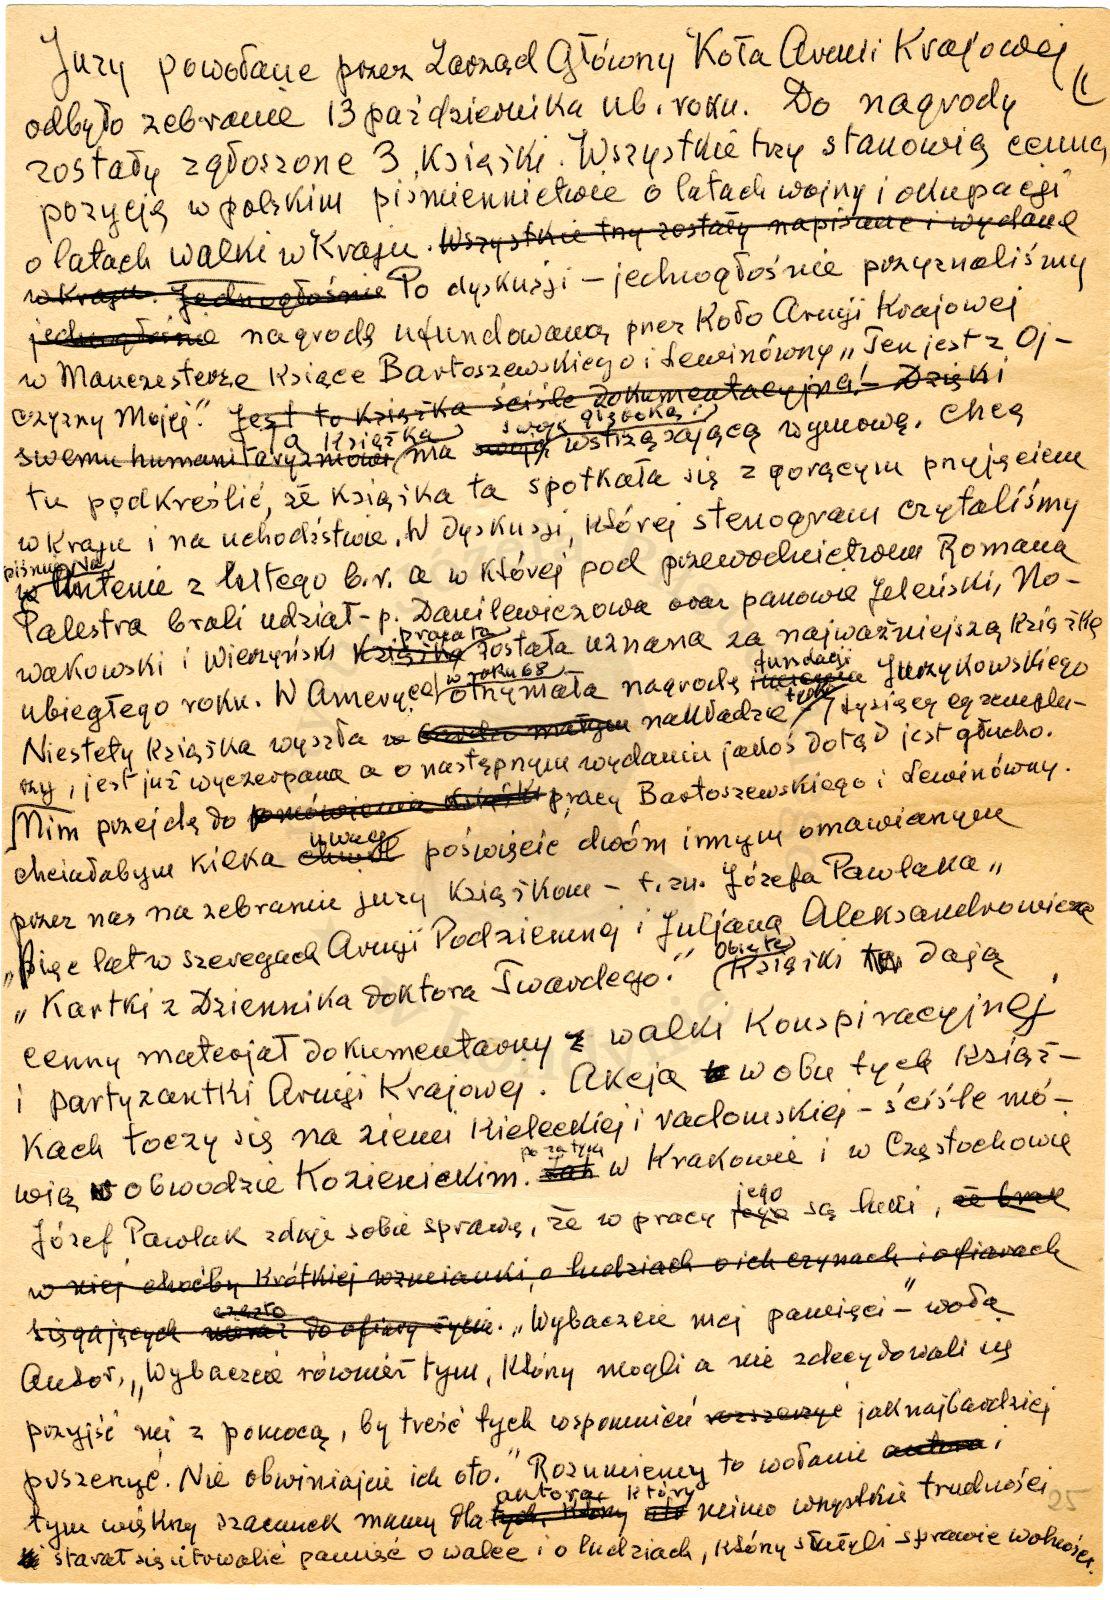 Jury powołane przez Zarząd Główny Koła Armii Krajowej
odbyło zebranie 13 października ub. roku. Do nagrody
zostały zgłoszone 3 książki. Wszystkie trzy stanowią cenną
pozycją w polskim piśmiennictwie o latach wojny i okupacji
o latach walki w Kraju. Wszystkie trzy zostały napisane i wydane
w Kraju. Jednogłośnie Po dyskusji – jednogłośnie przyznaliśmy
jednogłośnie nagrodę ufundowaną przez Koło Armji Krajowej
w Manczesterze książce Bartoszewskiego i Lewinówny „Ten jest z Oj-
czyzny Mojej." Jest to książka ściśle dokumentacyjna! – Dzięki
swemu humanitaryzmowi Ta książka ma swoją swoją głęboką i wstrząsającą wymowę. Chcę
tu podkreślić, że książka ta spotkała się z gorącym przyjęciem
w Kraju i na uchodźstwie. W dyskusji, której stenogram czytaliśmy
w piśmie z lutego b.r. a w której pod przewodnictwem Romana
Palestra brali udział – p. Danilewiczowa oraz panowie Jeleński, No-
wakowski i Wierzyński książka praca ta została uznana za najważniejszą książkę
ubiegłego roku. W Ameryce w roku 68 otrzymała nagrodę fundacji Jurzykowskiego
Niestety książka wyszła w bardzo małym nakładzie / tysięcy egzempla-
rzy, jest już wyczerpana a o następnym wydaniu jakoś dotąd jest głucho.
Nim przejdę do omówienia książki pracy Bartoszewskiego i Lewinówny.
chciałabym kilka chwil uwag poświęcić dwóm innym omawianym
przez nas na zebraniu jury książkom – t.zn. Józefa Pawlaka „
„Pięc lat w szeregach Armji Podziemnej i Juljana Aleksandrowicza
„Kartki z Dziennika doktora Twardego." Obie te Książki te dają
cenny materjał dokumentarny z walki konspiracyjnej
i partyzantki Armji Krajowej. Akcja w obu tych książ-
kach toczy się na ziemi Kieleckiej i radomskiej – ściśle mó-
wią w obwodzie Kozienickim. poza tym w Krakowie i w Częstochowie
Józef Pawlak zdaje sobie sprawę, że w pracy jego jego są luki, że brak
w niej choćby krótkiej wzmianki, o ludziach o ich czynach i ofiarach
sięgających nieraz często do ofiary życia. „Wybaczcie mej pamięci –" woła
Autor, „Wybaczcie również tym, którzy mogli a nie zdecydowali się
przyjść mi z pomocą, by treść tych wspomnień rozszerzyć jaknajbardziej
poszerzyć. Nie obwiniajcie ich oto." Rozumiemy to wołanie autora i
tym większy szacunek mamy dla tych, którzy autora, który mimo wszystkie trudności
starał się utrwalić pamięć o walce i o ludziach, którzy służyli sprawie wolności.
25